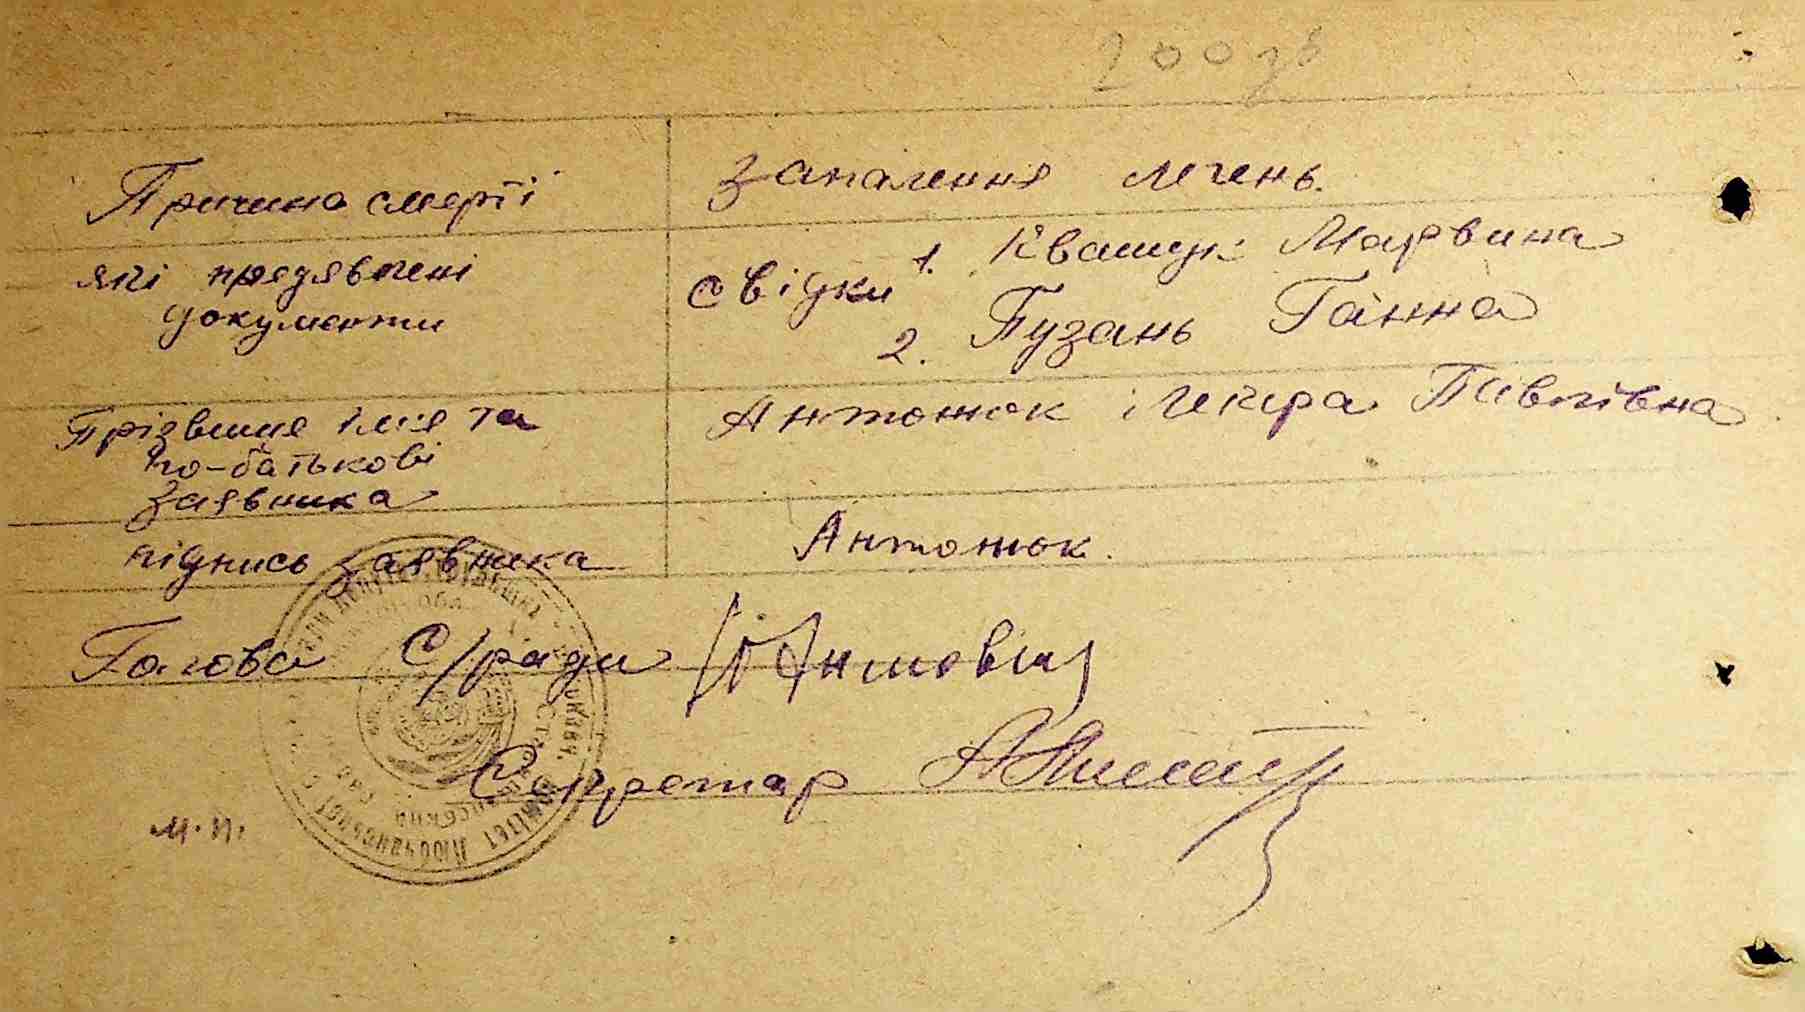 200зв
Причина смерті
Запалення легень.
які предявлені
документи
Свідки 1. Кващук Марвина
2. Пузань Ганна
Прізвище імя та
по-батькові
заявника
Антонюк Павлівна
підпись заявника
Антонюк.
Голова С/ради
Секретар
м.п.